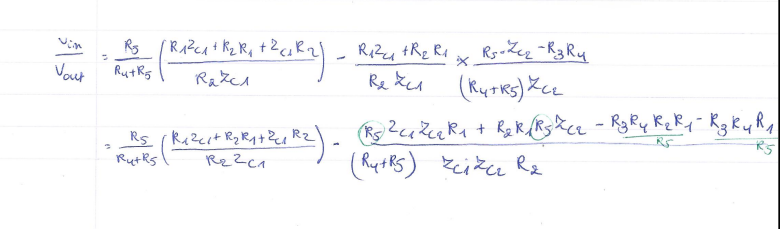 Vin/Vout = R5/(R4+R5) ((R1Zc1+R2R1+Zc1R2)/(R2Zc1)) - (R1Zc1+R2R1)/(R2Zc1) × (R5·Zc2-R3R4)/((R4+R5)Zc2)
= R5/(R4+R5) ((R1Zc1+R2R1+Zc1R2)/(R2Zc1)) - (R5Zc1Zc2R1 + R2R1R5Zc2 - R3R4R2R1 - R3R4R1)/((R4+R5) Zc1Zc2 R2)
R5 R5